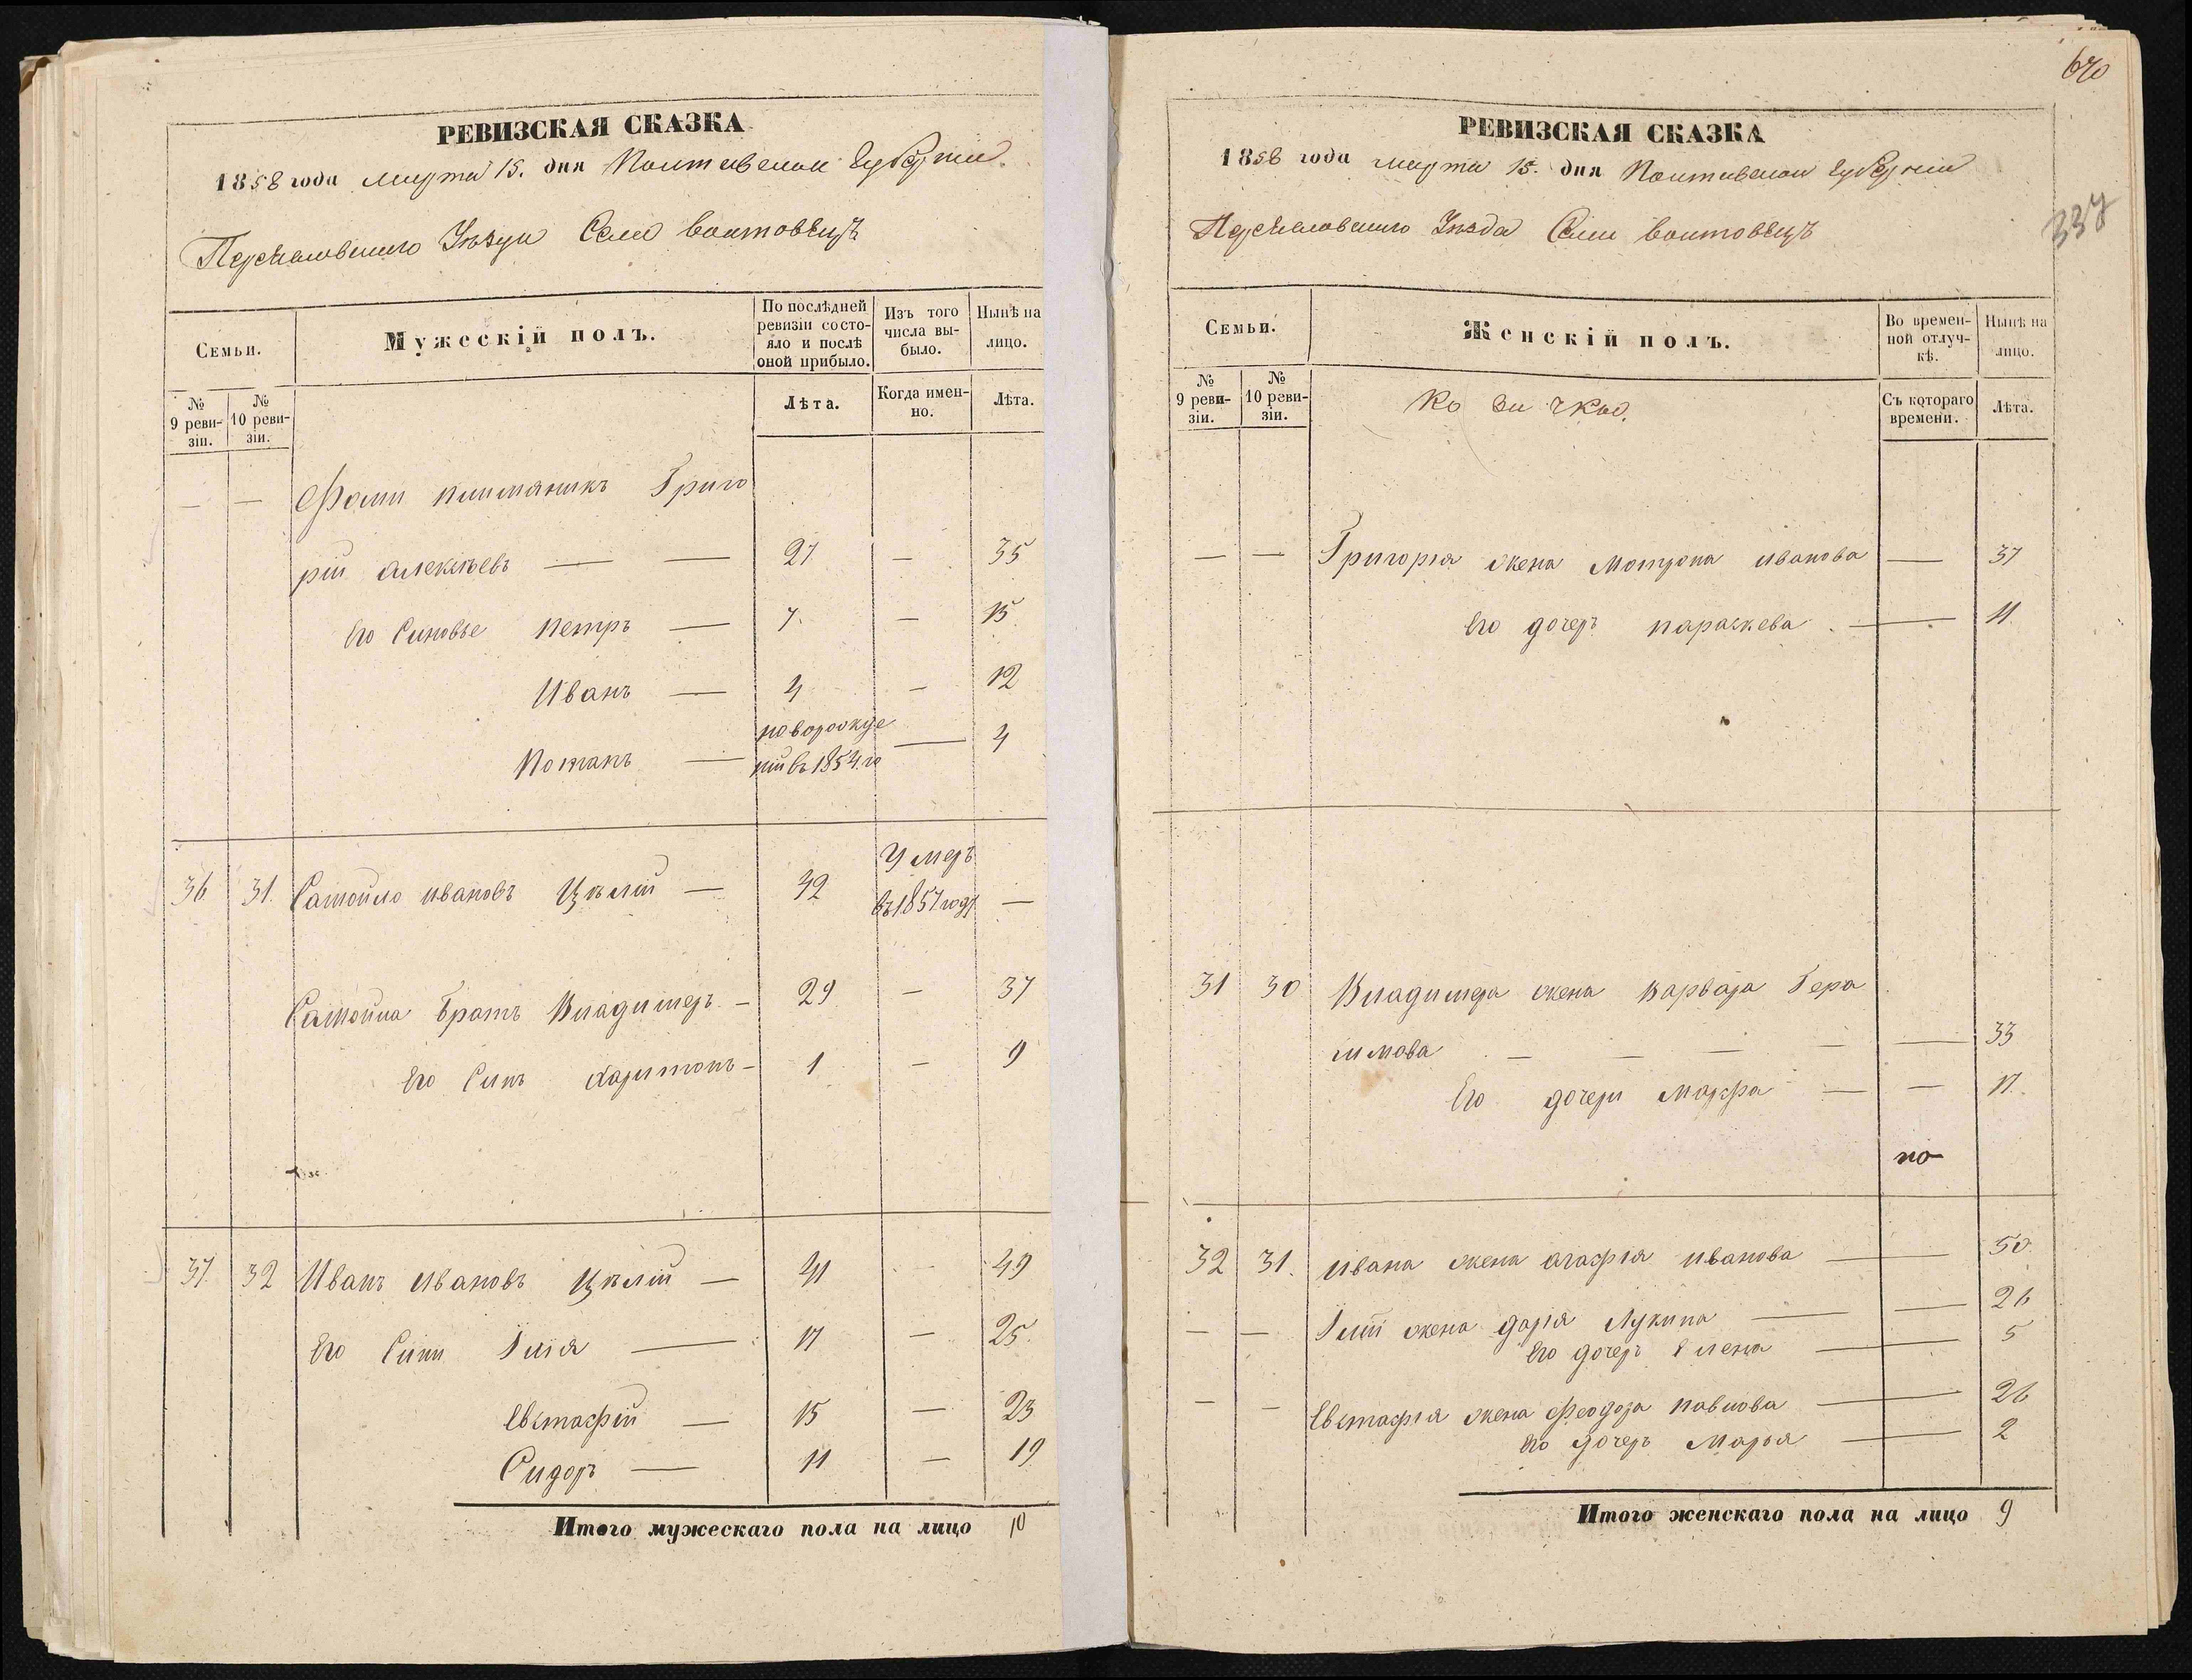 РЕВИЗСКАЯ СКАЗКА
1858 года марта 15. дня Полтавской Губерніи.
Переяславскаго Уѣзда Села Войтовецъ
Семьи.
Мужескій полъ.
По послѣдней ревизіи состояло и послѣ оной прибыло.
Изъ того числа выбыло.
Нынѣ на лицо.
№ 9 ревизіи.
№ 10 ревизіи.
Лѣта.
Когда именно.
Лѣта.
— — Фоми племяникъ Григо
рій Алексѣевъ — — 27 — 35
Его Синовье Петръ — 7. — 15
Иванъ — 4 — 12
Потапъ — новорожде
ній въ 1854 го — 4
Умеръ
36 31. Самойло Ивановъ Цѣлій — 42 въ 1857 году —
Самойла Братъ Владимеръ — 29 — 37
Его Синъ Харитонъ — 1 — 9
37. 32 Иванъ Ивановъ Цѣлій — 41 — 49
Его Сини Илія — 17 — 25.
Евстафій — 15 — 23
Сидоръ — 11 — 19
Итого мужескаго пола на лицо 10
670
337
РЕВИЗСКАЯ СКАЗКА
1858 года марта 15. дня Полтавской Губерніи
Переяславскаго Уѣзда Села Войтовецъ
Семьи.
Женскій полъ.
Во временной отлучкѣ.
Нынѣ на лицо.
№ 9 ревизіи.
№ 10 ревизіи.
Съ котораго времени.
Лѣта.
— — Григорія жена Мотрона Иванова — 37
Его дочеръ Параскева — 11.
31 30 Владимера жена Варвара Гера
симова — — — — — 33
Его дочери Марфа — — 17.
по
32 31. Ивана жена Агафія Иванова — — 50.
— — Іліи жена Дарія Лукина — — 26
Его дочеръ Елена — — 5
— — Евстафія жена Феодора Павлова — — 26
Его дочеръ Марья — — 2
Итого женскаго пола на лицо 9